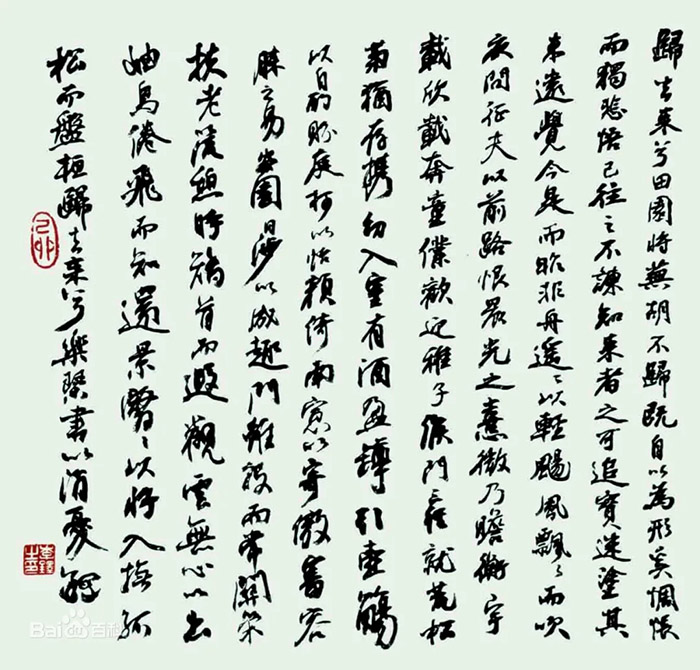 歸去来兮田園將蕪胡不歸既自以為形奚惆悵
而獨悲悟已往之不諫知来者之可追實迷塗其
未遠覺今是而昨非舟遥々以輕颺風飄々而吹
衣問征夫以前路恨晨光之熹微乃瞻衡宇
載欣載奔童僕歡迎稚子候門三徑就荒松
菊猶存携幼入室有酒盈罇引壺觴
以自酌眄庭柯以怡顔倚南窓以寄傲審容
膝之易安園日涉以成趣門雖設而常關策
扶老流憩時矯首而遐觀雲無心以出
岫鳥倦飛而知還景翳々以將入撫孤
松而盤桓歸去来兮樂琴書以消憂
Bai百科